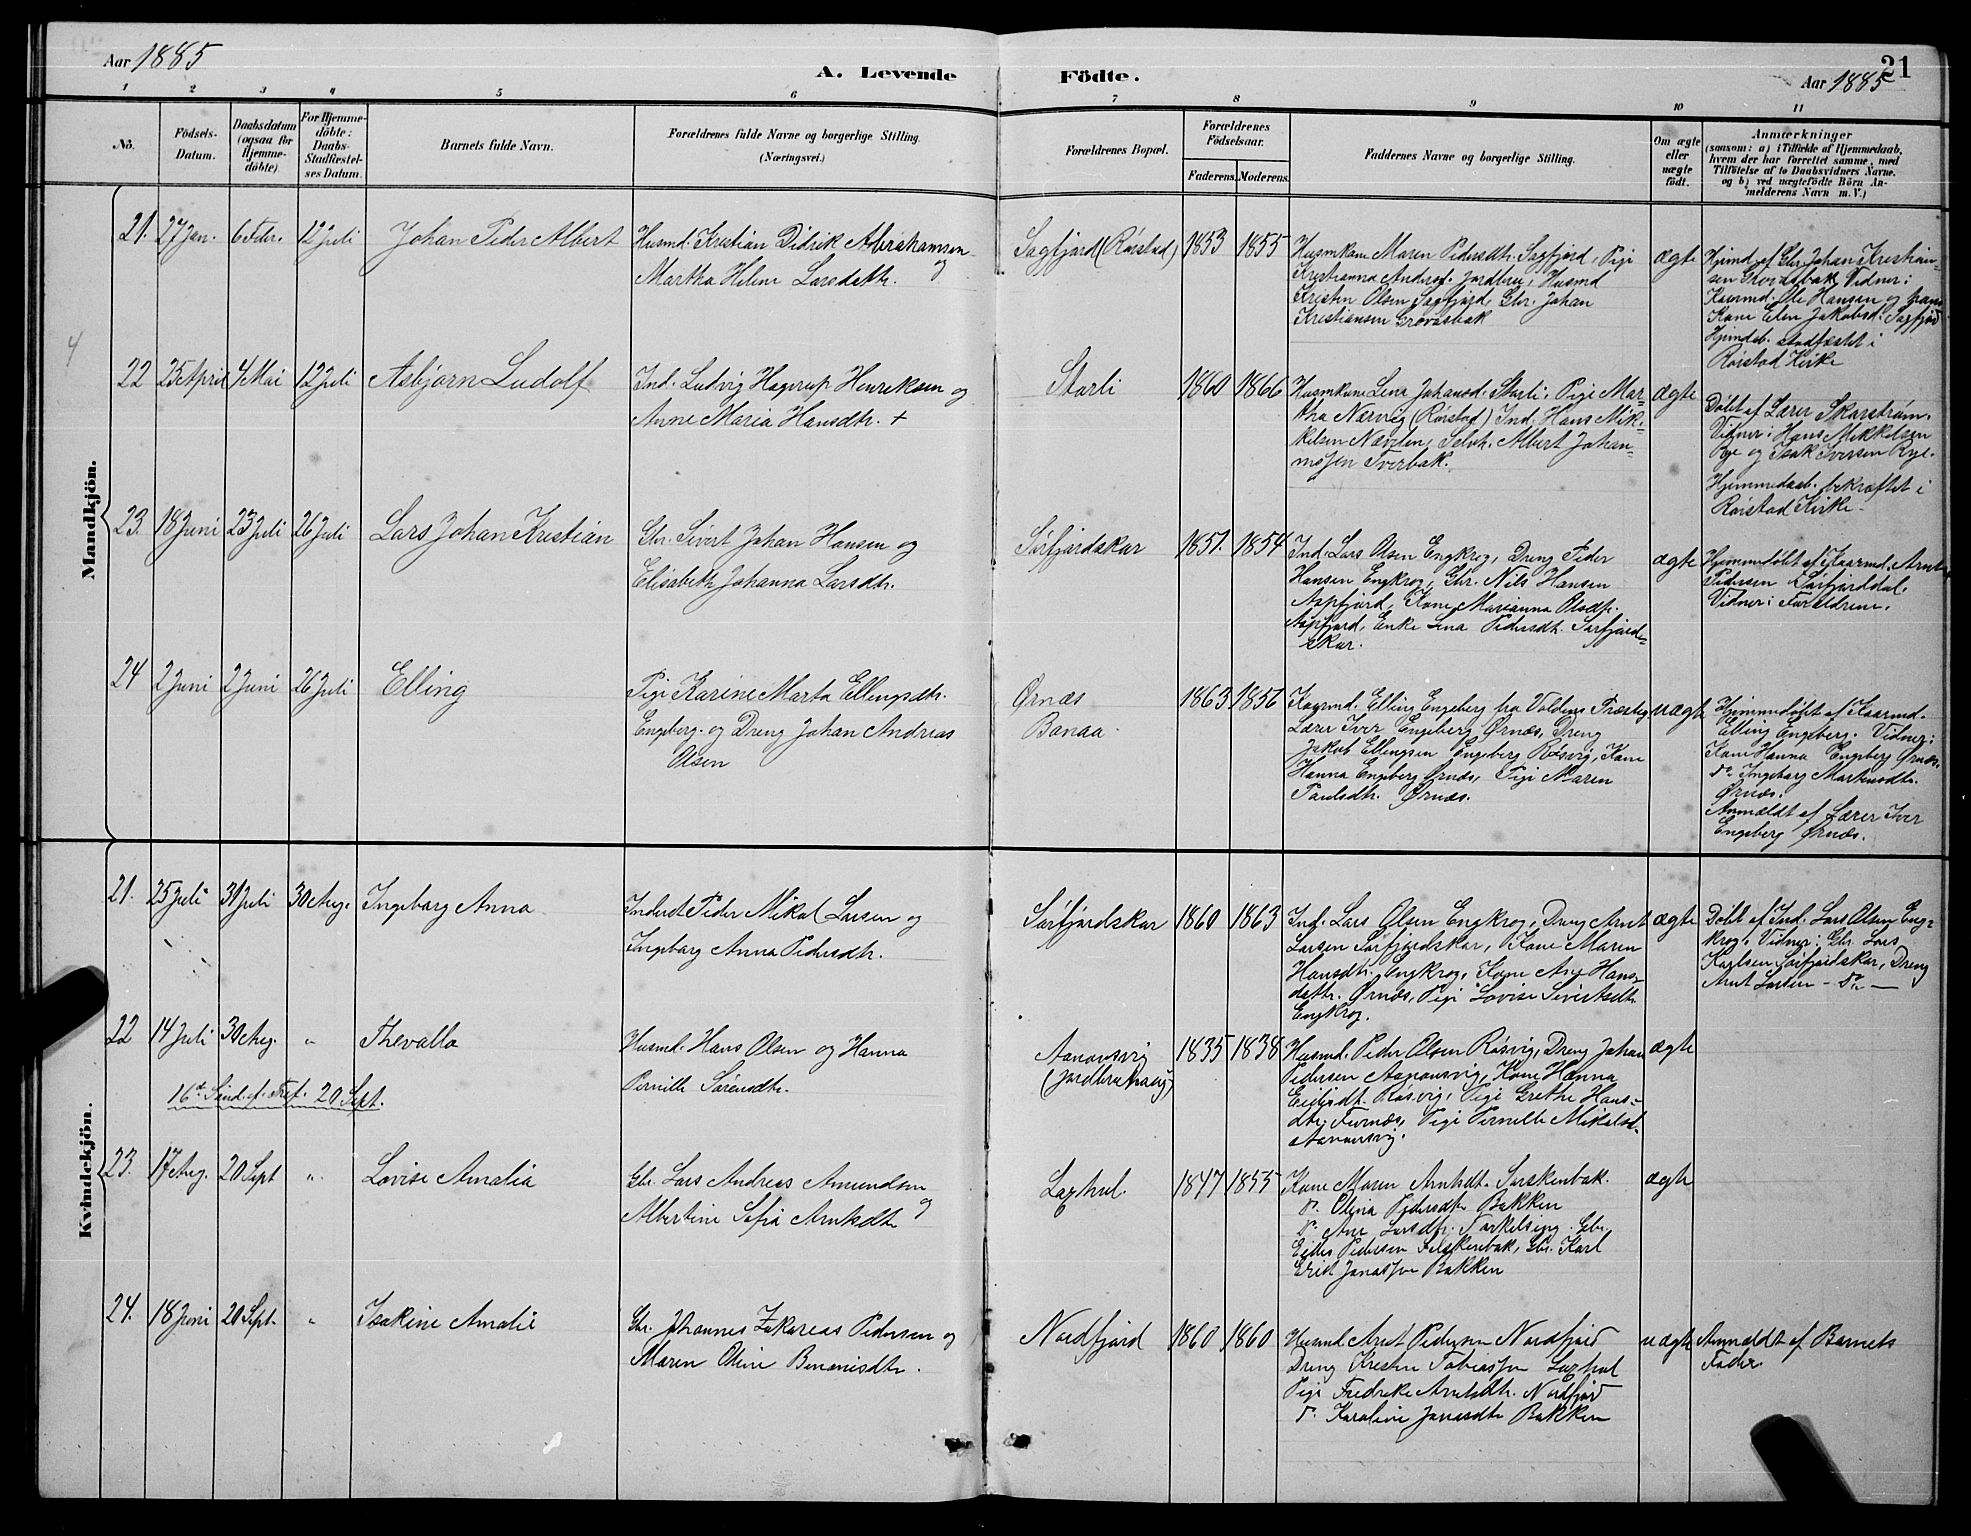 Aar 1885
A. Levende Födte.
21
Aar 1885
1 2 3 4 5 6 7 8 9 10 11
No.
Födsels-Datum.
Daabsdatum (ogsaa for Hjemme-döbte)
For Hjemme-döbte: Daabs-Stadfæstel-ses Datum.
Barnets fulde Navn.
Forældrenes fulde Navne og borgerlige Stilling.
(Næringsvei.)
Forældrenes Bopæl.
Forældrenes Födselsaar.
Faderens. Moderens.
Faddernes Navne og borgerlige Stilling.
Om ægte eller uægte födt.
Anmærkninger
(saasom: a) i Tilfælde af Hjemmedaab,
hvem der har forrettet samme, med
Tilföielse af to Daabsvidners Navne.
og b) ved uægtefödte Börn An-
melderens Navn m. V.)
4
Mandkjön.
21. 27 Jan. 6 Febr. 12 Juli Johan Peder Albert
Husmd. Kristian Didrik Abrahamsen
og
Martha Helene Larsdatr.
Sagfjord (Rörstad) 1853 1855
Husmkone Maren Pedersdtr. Sagfjord, Pige
Kristianna Andersd. Jordbru, Husmd
Kresten Olsen Sagfjord, Gbr. Johan
Kristiansen Grovasbak
ægte
Hjemd. af Gbr. Johan Kristian-
sen Grovasbak Vidner:
Kaarmd. Ole Hansen og hans
Kone Elen Jakobsd. Sagfjord
Hjemdab. stadfæstet i
Rörstad Kirke
22 25 April 4 Mai 12 Juli Asbjørn Ludolf
Ind. Ludvig Hagerup Henriksen og
Anne Maria Hansdtr. +
Storli 1860 1866
Husmkone Lena Johansd. Storli, Pige Mar-
tha Nærvig (Rörstad) Ind. Hans Mik-
kelsen Nævelen, Selvh. Albert Johan-
nesen Tverbak.
ægte
Döbt af Lærer Skarström.
Vidner: Hans Mikkelsen
Rye og Isak Iversen Rye.
Hjemmedaab. bekræftet i
Rörstad Kirke.
23. 18 Juni 23 Juli 26 Juli Lars Johan Kristian
Gbr. Sivert Johan Hansen og
Elisabeth Johanna Larsdtr.
Sörfjordskar 1851. 1854
Ind. Lars Olsen Engkrog, Dreng Peder
Hansen Engkrog, Gbr. Nils Hansen
Aspfjord, Kone Marianna Olsdtr.
Aspfjord, Enke Lena Pedersdtr. Sörfjord-
skar.
ægte
Hjemmedöbt af Kaarmd. Arnt
Pedersen Sörfjorddal.
Vidner: Forældrene.
24 2 Juni 2 Juni 26 Juli Elling
Pige Karine Marta Ellingsdtr.
Engeberg. og Dreng Johan Andreas
Olsen
Ørnæs
Bonaa.
1863 1856
Kaarmd. Elling Engeberg fra Voldens Præstegj.
Lærer Iver Engeberg Ørnæs, Dreng
Jakob Ellingsen Engeberg Rösvig, Kone
Hanna Engeberg Ørnæs, Pige Maren
Paulsdtr. Ørnæs.
uægte
Hjemmedöbt af Kaarmd.
Elling Engeberg. Vidner:
Kone Hanna Engeberg Ørnæs,
do Ingeborg Martinusdtr.
Ørnæs.
Anmeldt af Lærer Iver
Engeberg Ørnæs.
Kvindekjön.
21. 25 Juli 31 Juli 30 Aug. Ingeborg Anna
Inderst Peder Mikal Larsen og
Ingeborg Anna Pedersdtr.
Sörfjordskar 1860 1863
Ind. Lars Olsen Engkrog, Dreng Arnt
Larsen Sörfjordskar, Kone Maren
Hansdtr. Engkrog, Kone Ane Hans-
datr. Ørnæs, Pige Lovise Sivertsdtr
Engkrog.
ægte
Döbt af Ind. Lars Olsen Eng-
krog, Vidner: Gbr. Lars
Karlsen Sörfjordskar, Dreng
Arnt Larsen - Do -
22 14 Juli 30 Aug. " Thevalla
Husmd. Hans Olsen og Hanna
Pernille Sörensdtr.
16de Sönd. ef. Tref. 20 Sept.
Aanonsvig 1835 1838
Husmd. Peder Olsen Rösvig, Dreng Johan
Pedersen Aanonsvig, Kone Hanna
Eilisdt. Rösvig, Pige Grethe Hans-
dtr. Furnæs, Pige Pernille Mikalsd.
Aanonsvig.
ægte
23. 17 Aug. 20 Sept " Lovise Amalia
Gbr. Lars Andreas Amundsen
og
Albertine Sofia Arntsdtr
Laxhul. 1847 1855
Kone Maren Arntsdt.
Do Olena Pedersdtr Bakken
Do Ane Larsdtr. Gbr.
Eilis Pedersen Gbr. Karl
Erik Jonassen Bakken
ægte
24. 18 Juni 20 Sept. " Isakine Amalie
Gbr. Johannes Zakarias Pedersen og
Maren Oline Benonisdtr.
Nordfjord 1860 1860
Husmd Arnt Pedersen Nordfjord
Dreng Kresten Tobiassen Laxhul
Pige Fredrikke Arntsdtr. Nordfjord
Do Karoline Jonasdtr Bakken
uægte
Anmeldt af Barnets
Fader